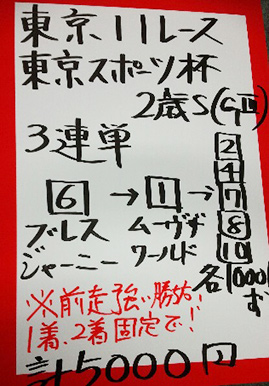 東京11レース
東京スポーツ杯
2歳S(GⅢ)
3連単
6→1→2 4 7 8 10
ブレス ムーヴザ
ジャーニー ワールド
各1000ず
※前走強い勝方!
1着、2着固定で!!
計5000円